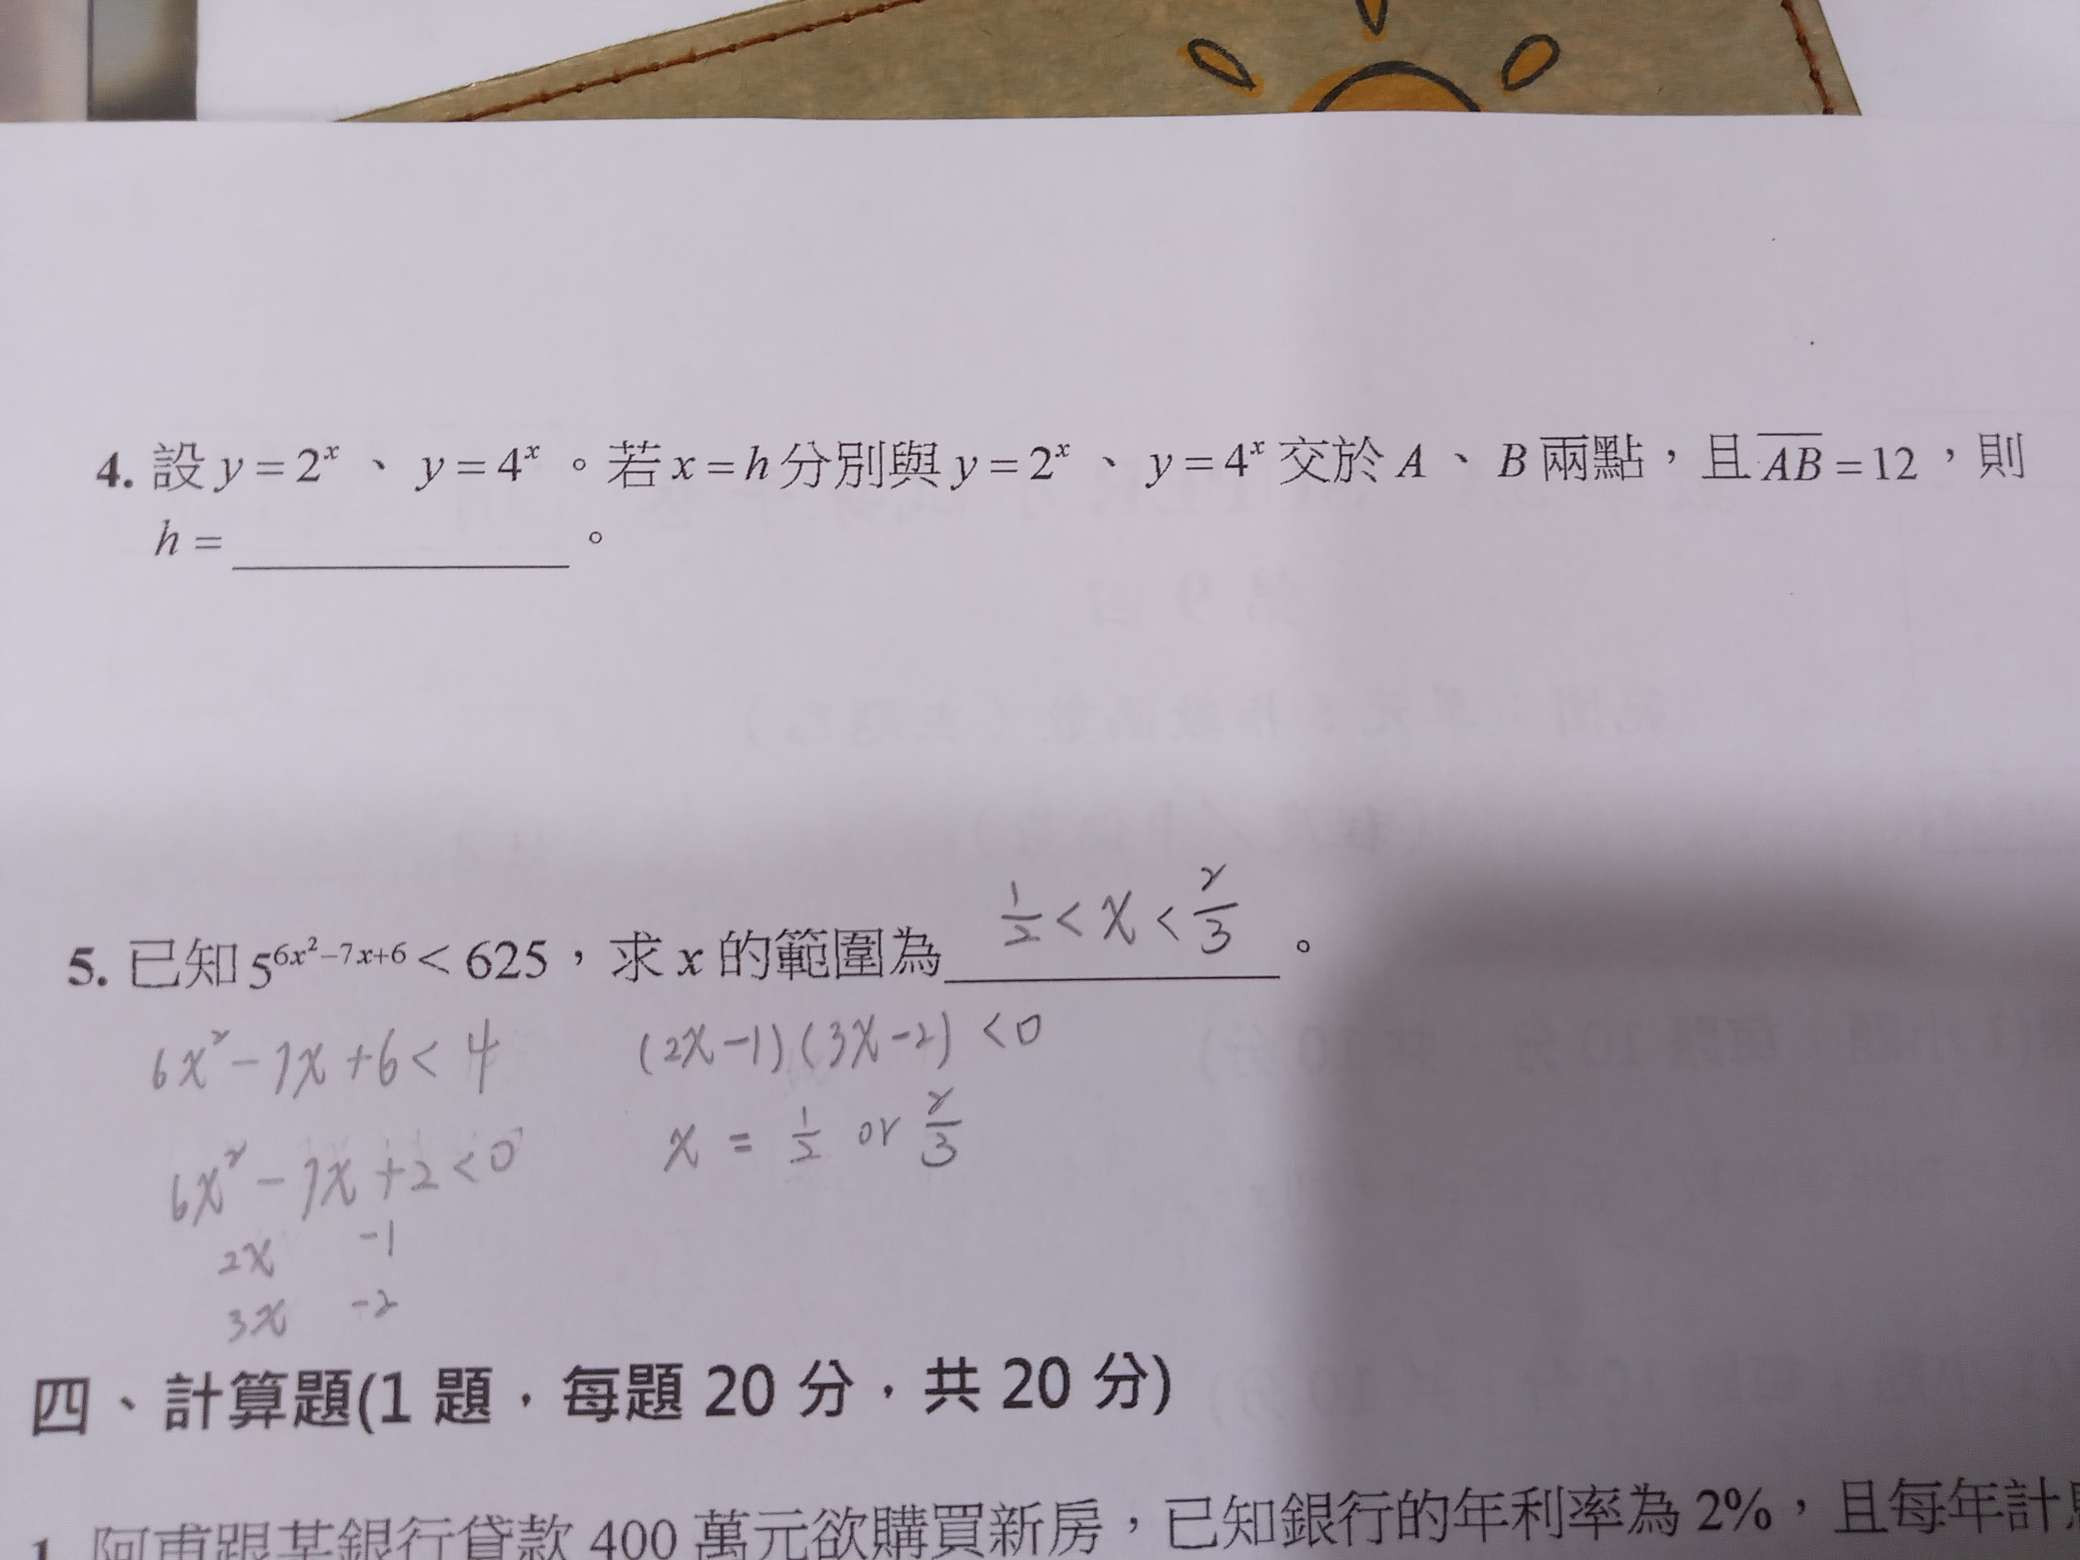 4. 設 y = 2ˣ 、 y = 4ˣ 。若 x = h 分別與 y = 2ˣ 、 y = 4ˣ 交於 A 、 B 兩點，且 A̅B̅ = 12 ，則
h = ________ 。
5. 已知 5^(6x²−7x+6) < 625，求 x 的範圍為 1/2 < x < 2/3 。
6x² − 7x + 6 < 4
(2x−1)(3x−2) < 0
6x² − 7x + 2 < 0
x = 1/2 or 2/3
2x −1
3x −2
四、計算題(1 題，每題 20 分，共 20 分)
1. 阿甫跟某銀行貸款 400 萬元欲購買新房，已知銀行的年利率為 2%，且每年計